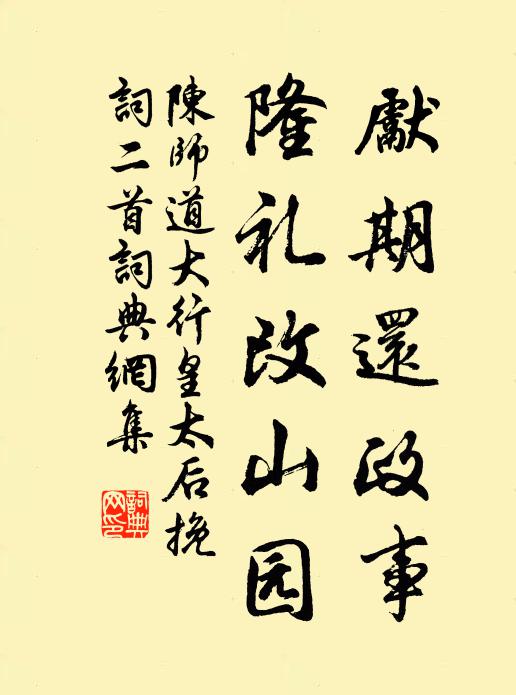 獻期還政事
隆礼改山园
陳師道大行皇太后挽
詞二首詞典網集
詞典
网印